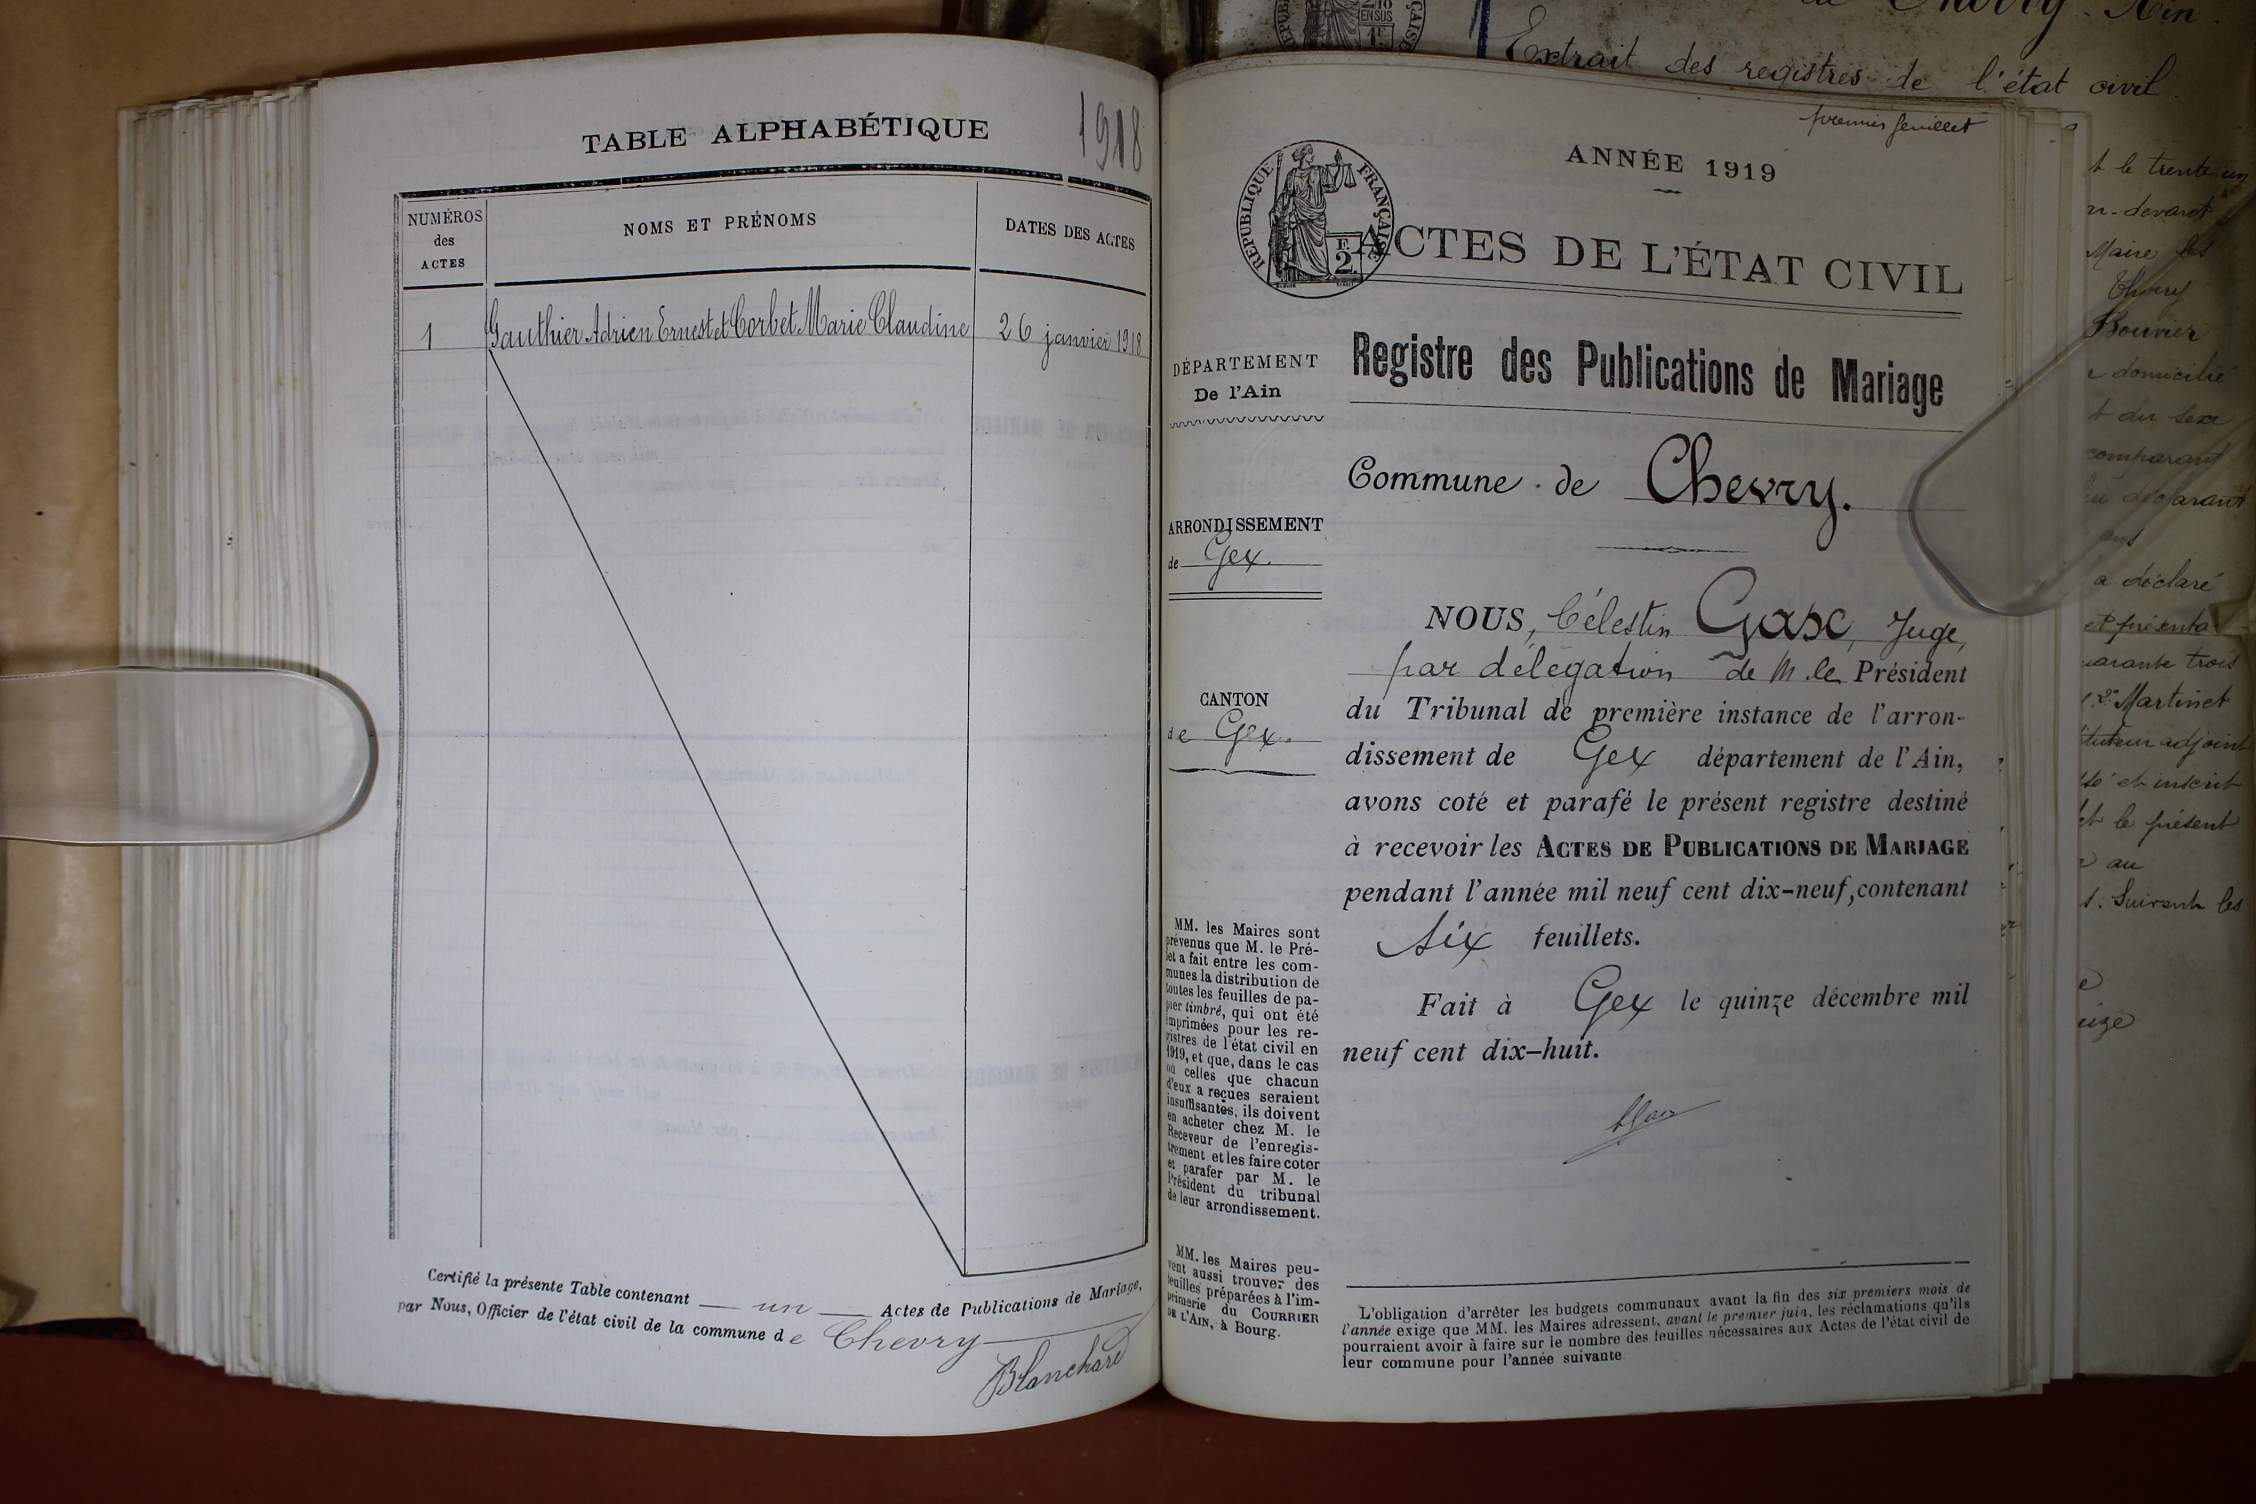 TABLE ALPHABÉTIQUE
1918
NUMÉROS
des
ACTES
NOMS ET PRÉNOMS
DATES DES ACTES
1
Gauthier Adrien Ernest et Corbet Marie Claudine
26 janvier 1918
Certifié la présente Table contenant un Actes de Publications de Mariage,
par Nous, Officier de l'état civil de la commune de Chevry
Blanchard
premier feuillet
ANNÉE 1919
RÉPUBLIQUE FRANÇAISE
F.
2.
ACTES DE L'ÉTAT CIVIL
Registre des Publications de Mariage
DÉPARTEMENT
De l'Ain
Commune de Chevry.
ARRONDISSEMENT
de Gex.
CANTON
de Gex.
NOUS, Célestin Gasc, Juge,
par délégation de M. le Président
du Tribunal de première instance de l'arron-
dissement de Gex département de l'Ain,
avons coté et parafé le présent registre destiné
à recevoir les ACTES DE PUBLICATIONS DE MARIAGE
pendant l'année mil neuf cent dix-neuf, contenant
six feuillets.
Fait à Gex le quinze décembre mil
neuf cent dix-huit.
MM. les Maires sont
prévenus que M. le Pré-
fet a fait entre les com-
munes la distribution de
toutes les feuilles de pa-
pier timbré, qui ont été
imprimées pour les re-
gistres de l'état civil en
1919, et que, dans le cas
où celles que chacun
d'eux a reçues seraient
insuffisantes, ils doivent
en acheter chez M. le
Receveur de l'enregis-
trement et les faire coter
et parafer par M. le
Président du tribunal
de leur arrondissement.
MM. les Maires peu-
vent aussi trouver des
feuilles préparées à l'im-
primerie du COURRIER
DE L'AIN, à Bourg.
L'obligation d'arrêter les budgets communaux avant la fin des six premiers mois de
l'année exige que MM. les Maires adressent, avant le premier juin, les réclamations qu'ils
pourraient avoir à faire sur le nombre des feuilles nécessaires aux Actes de l'état civil de
leur commune pour l'année suivante
de Chevry - Ain.
Extrait des registres de l'état civil.
le trente un
devant
Maire
Bouvier
domicilié
du sexe
comparant
déclarant
ans
a déclaré
et présenta
quarante trois
Martinet
adjoint
et inscrit
et le présent
au
Suivent les